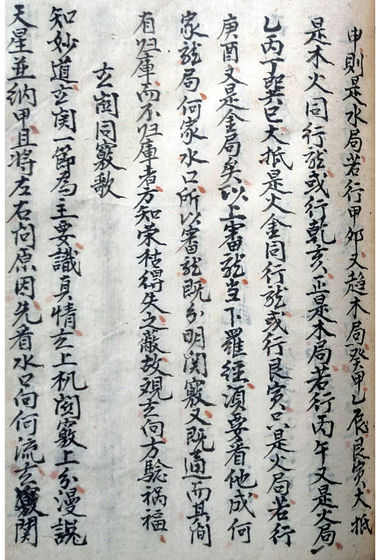 申則是水局若行甲夘又趋木局癸甲乙辰艮寅大抵
是木火同行龍或行乾亥正是木局若行丙午又是火局
乙丙丁巽巳大抵是火金同行龍或行艮寅只是火局若行
庚酉又是金局矣以上審龍当下羅経須要看他成何
家龍局何家水口所以審龍既分明関竅又既通而其间
有归庫而不归庫者方知荣枯得失之蔽故观玄向方驗祸福
玄関同竅歌
知妙道玄関一節為主要識真情玄上机関竅上分漫説
天星並納甲且将左右问原因先看水口向何流玄竅関